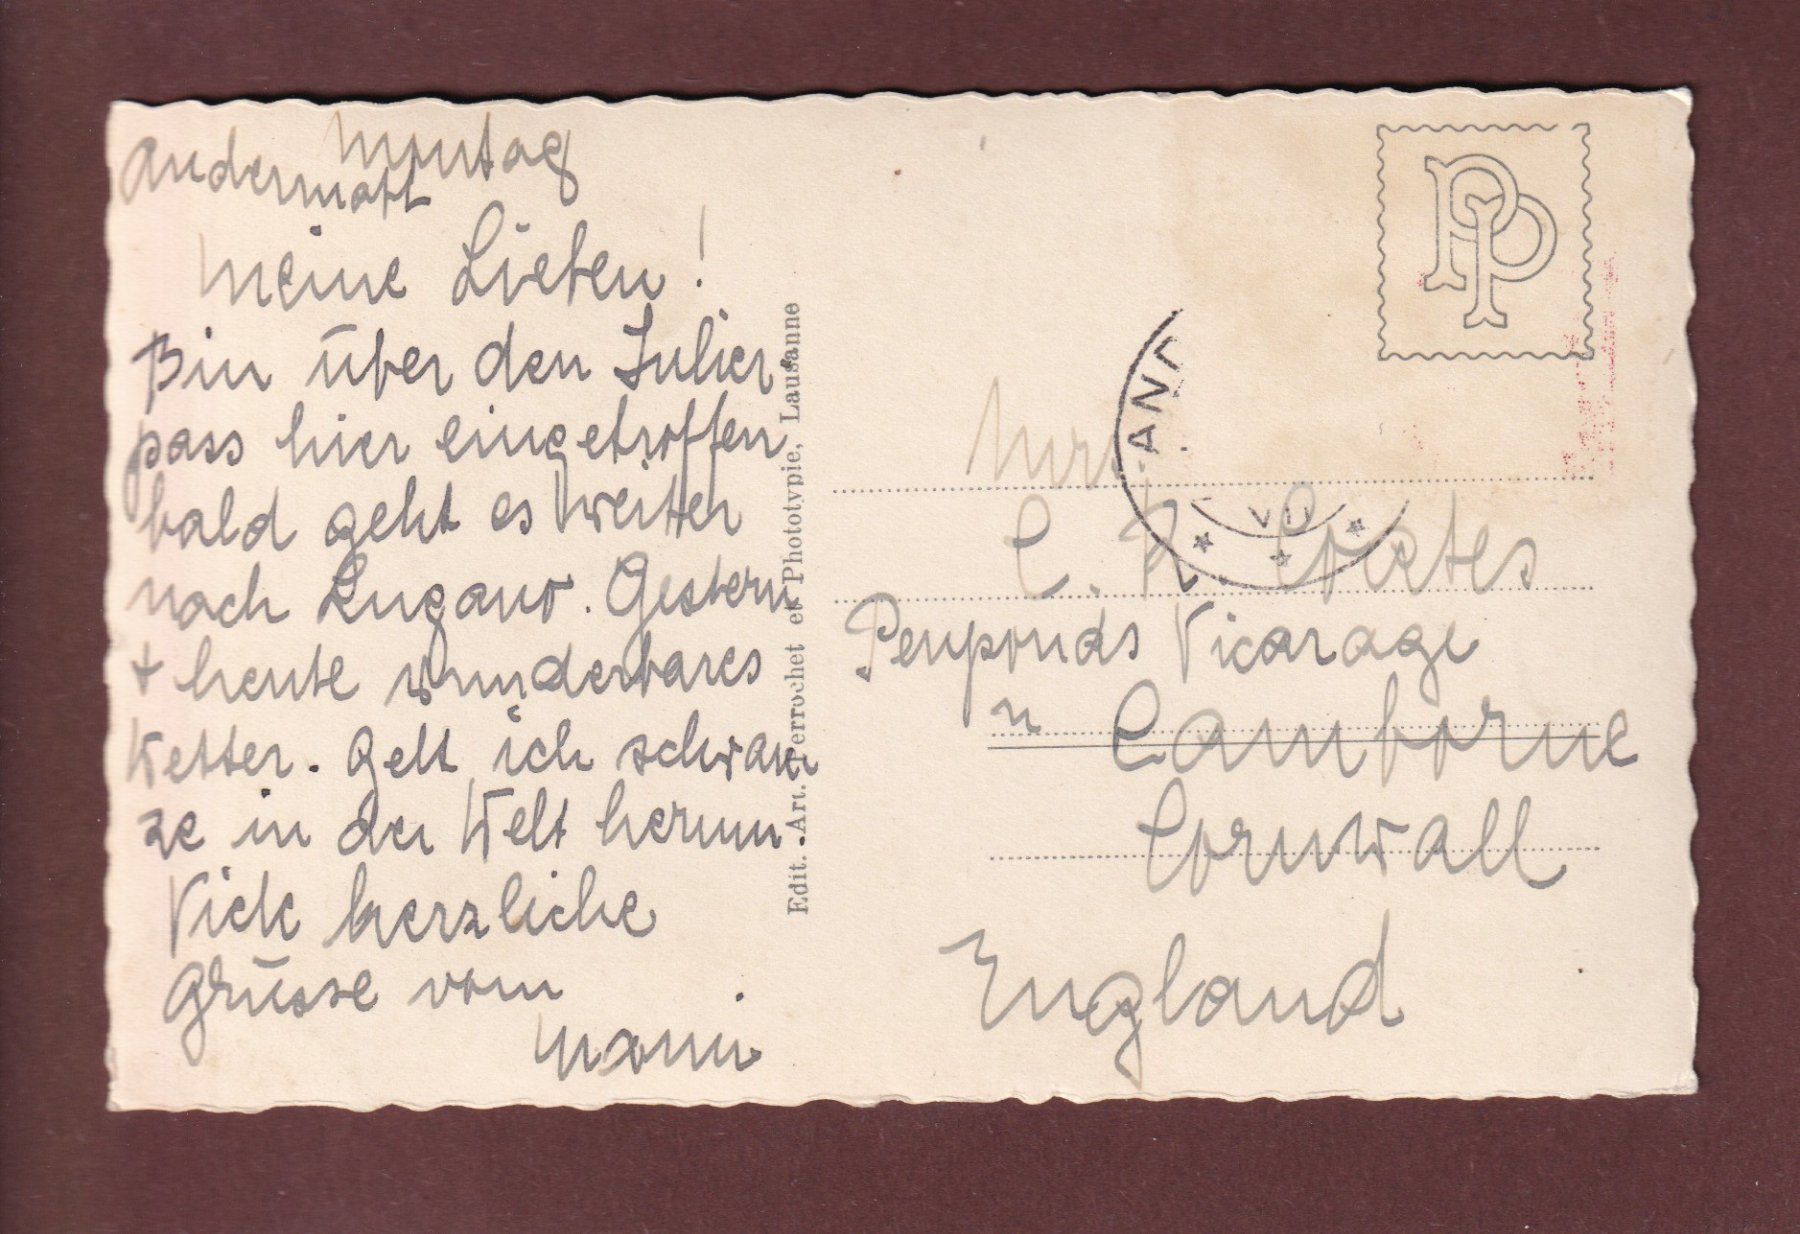 Montag
Andermatt
Meine Lieben!
Bin über den Julier
pass hier eingetroffen
bald geht es weiter
nach Lugano. Gestern
+ heute wunderbares
Wetter. Gelt ich schwan
ze in der Welt herum.
Viele herzliche
Grüsse vom
Edit. Art. Perrochet et Phototypie, Lausanne
PP
ANA
VII
Mrs
C. R.
Penponds Vicarage
n Camborne
Cornwall
England